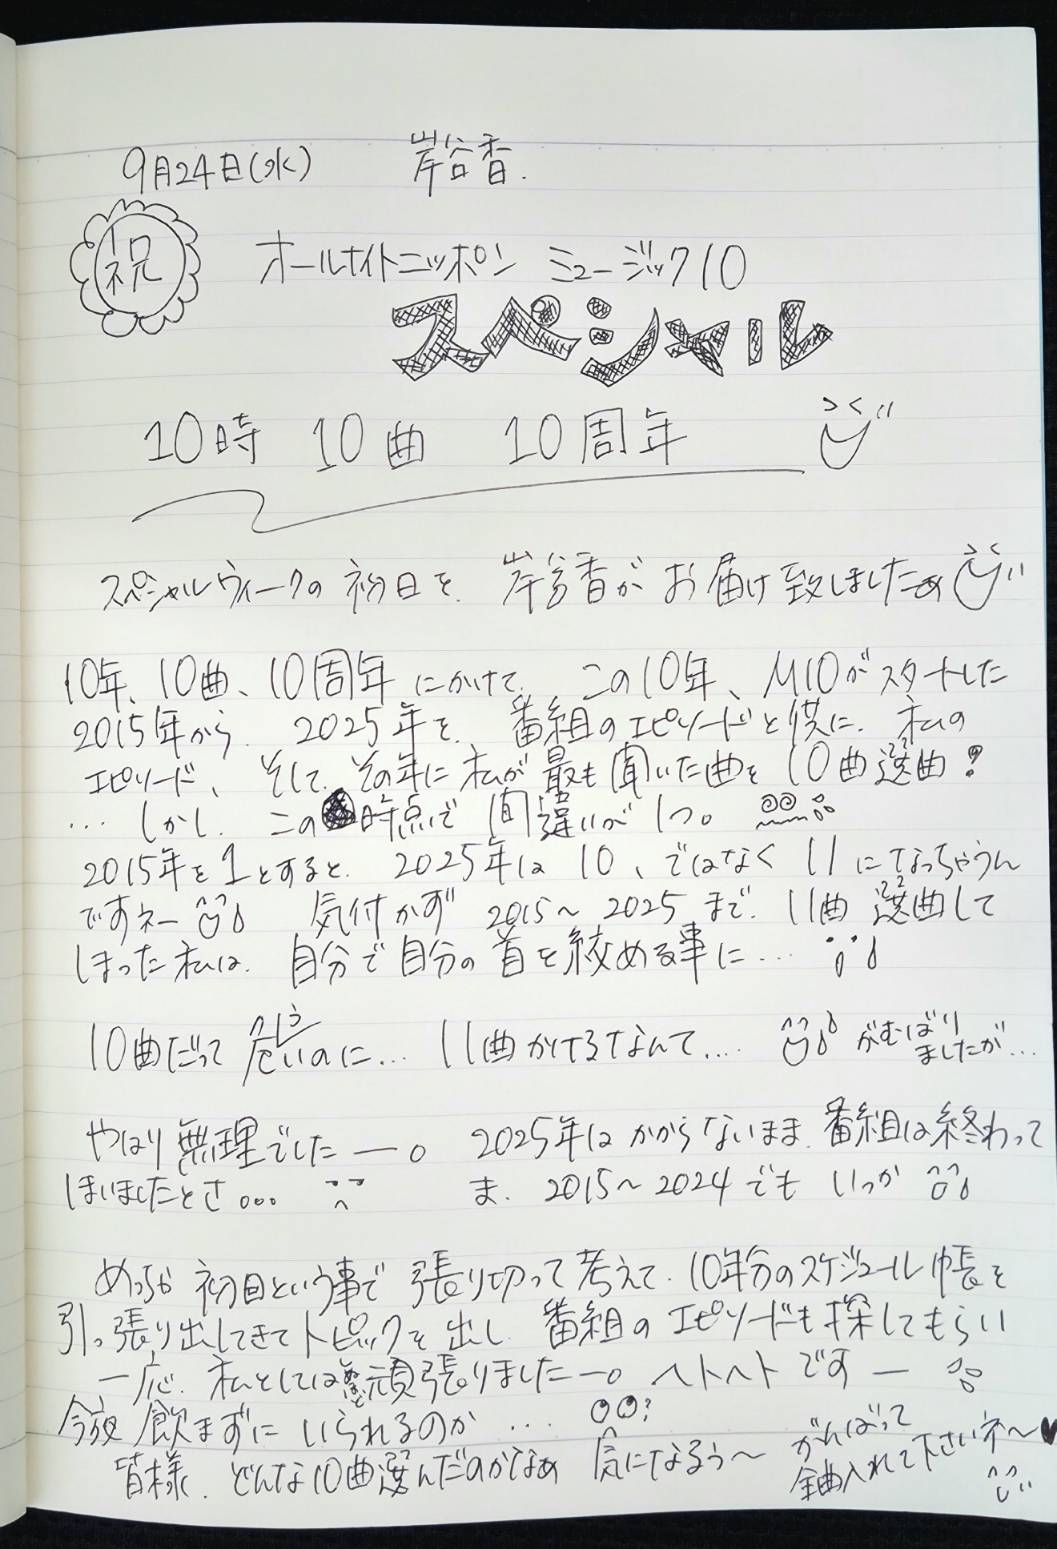 9月24日(水) 岸谷香.
祝
オールナイトニッポン ミュージック10
スペシャル
10時 10曲 10周年
スペシャルウィークの初日を、岸谷香がお届け致しましたぁ
10年、10曲、10周年にかけて、この10年、M10がスタートした
2015年から、2025年を、番組のエピソードと供に、私の
エピソード、そして、その年に私が最も聞いた曲を10曲選曲!
... しかし、この時点で間違いが1つ。
2015年を1とすると、2025年は10、ではなく11になっちゃうん
ですネー 気付かず 2015〜2025まで、11曲選曲して
しまった私は、自分で自分の首を絞める事に...
10曲だって危いのに... 11曲かけるなんて.... がむばり
ましたが...
やはり無理でしたー。 2025年はかからないまま、番組は終わって
しまいましたとさ... ま、2015〜2024でもいっか
めっちゃ初日という事で張り切って考えて、10年分のスケジュール帳を
引っ張り出してきてトピックを出し、番組のエピソードも探してもらい
一応、私としては頑張りましたー。ヘトヘトですー
今夜飲まずにいられるのか... ?
皆様、どんな10曲選んだのかなぁ 気になるぅ〜 がんばって
全曲入れて下さいネ〜♥